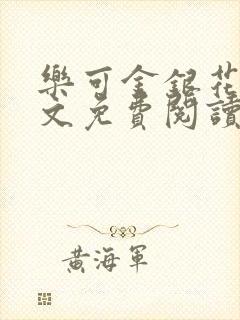 樂可金銀花
文免費閱讀
黃海軍